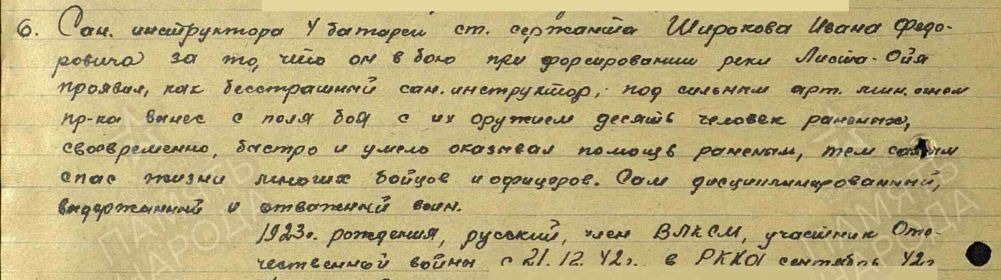 6. Сан. инструктора 4 батареи ст. сержанта Широкова Ивана Федо-
ровича за то, что он в бою при форсировании реки Листа-Ойя
проявил, как бесстрашный сан. инструктор, под сильным арт. мин. огнем
пр-ка вынес с поля боя с их оружием десять человек раненых,
своевременно, быстро и умело оказывал помощь раненым, тем самым
спас жизни многих бойцов и офицеров. Сам дисциплинированный,
выдержанный и отважный воин.
1923г. рождения, русский, член ВЛКСМ, участник Оте-
чественной войны с 21.12.42г. в РККА сентябрь 42г
ПАМЯТЬ
НАРОДА